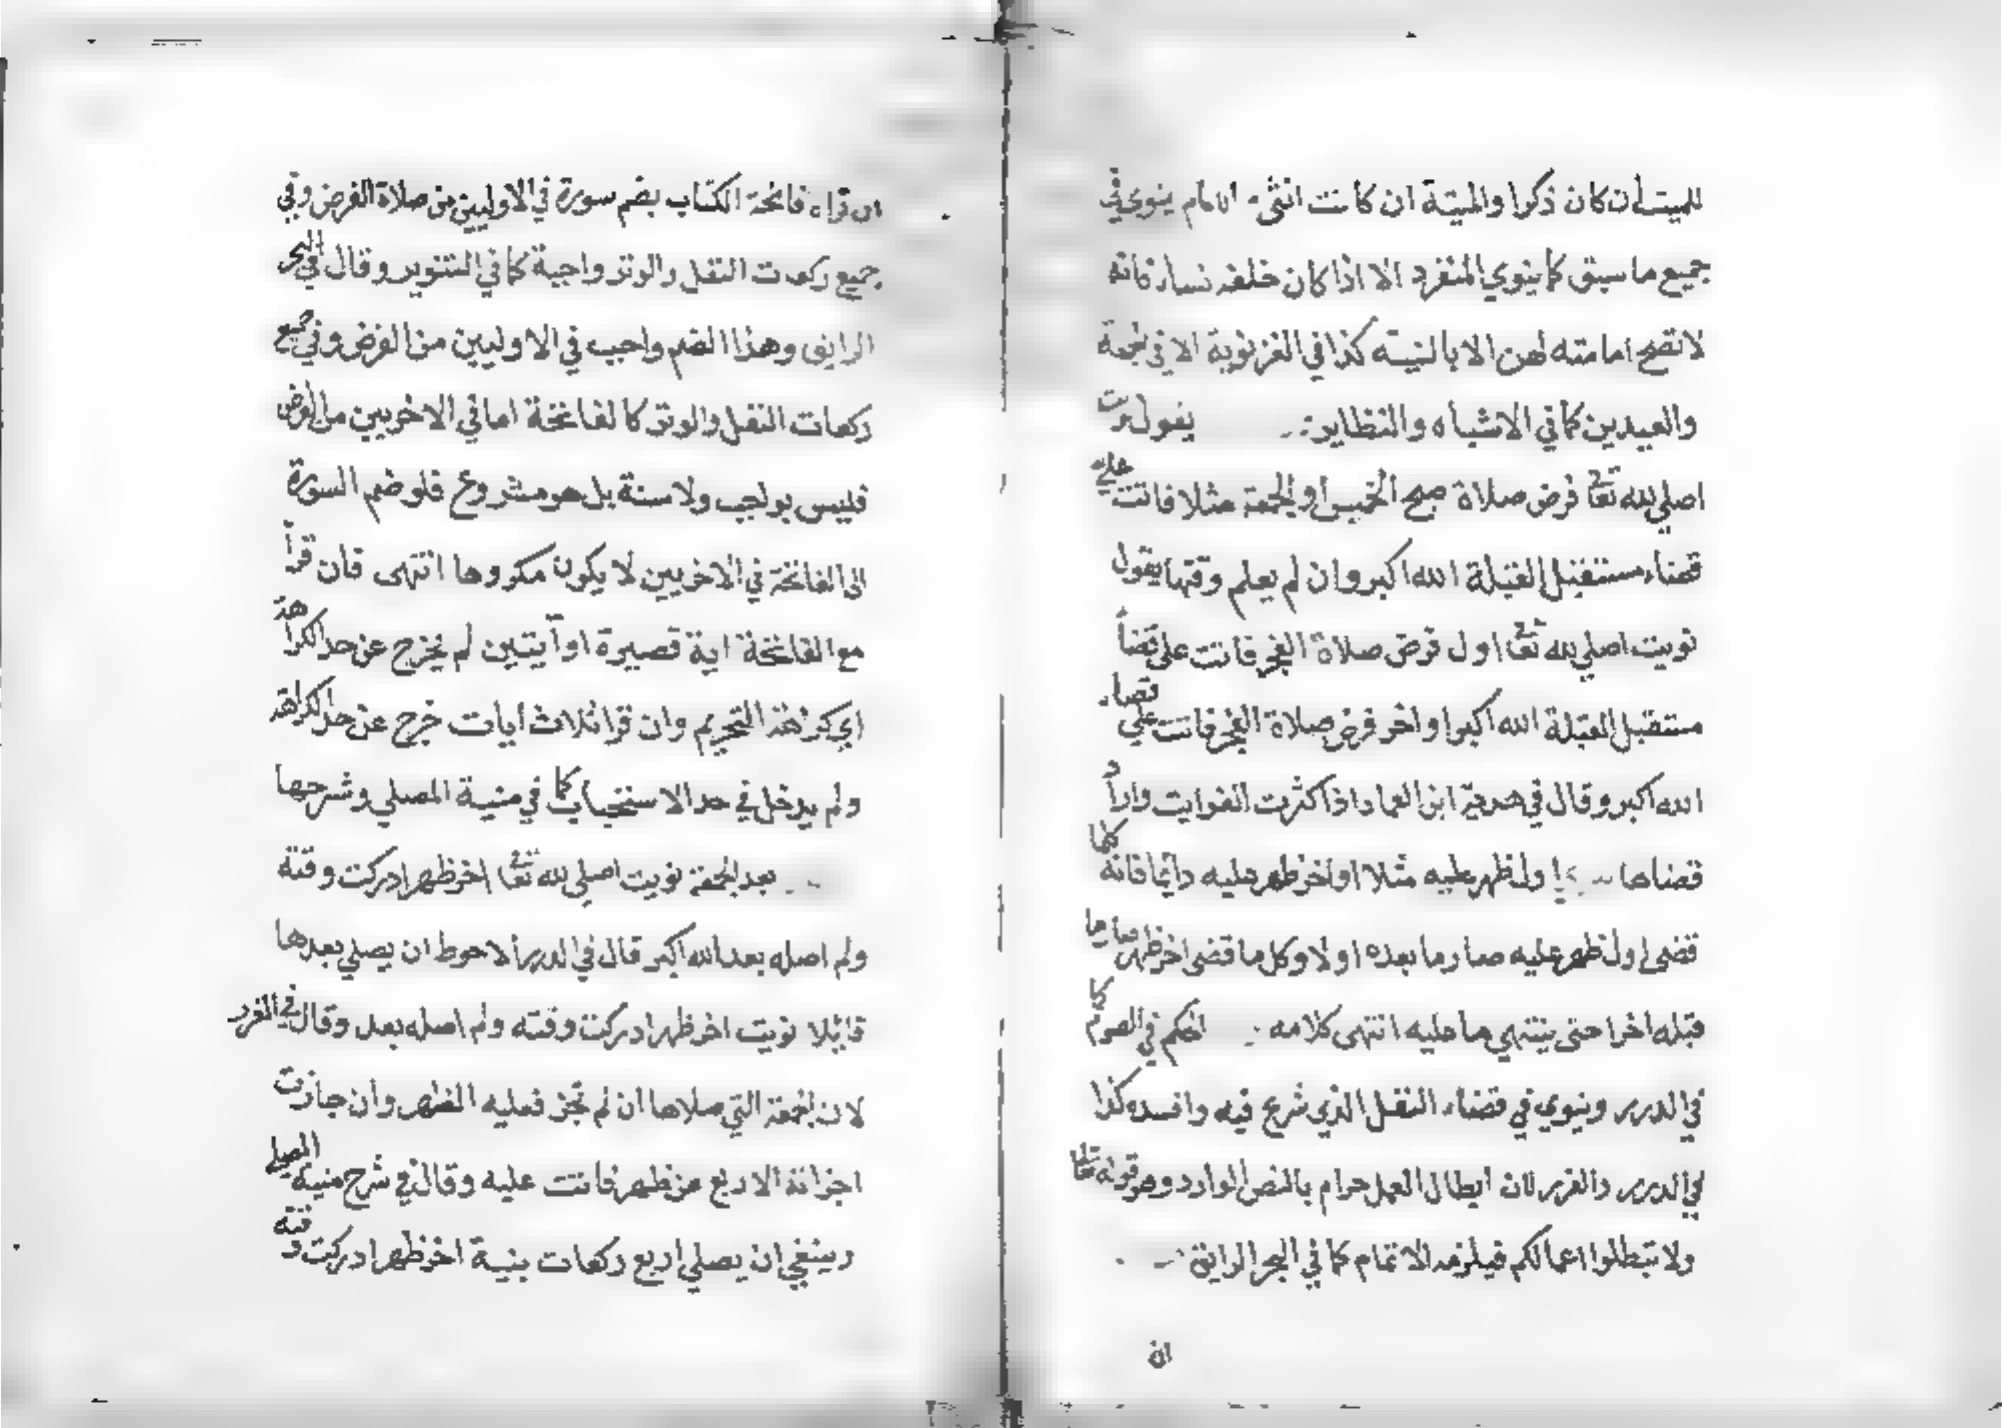 للميت أن كان ذكرا والميتة ان كانت انثى الامام ينوي في
جميع ما سبق كما ينوي المنفرد الا اذا كان خلفه نساء فانه
لا تصح امامته لهن الا بالنية كذا في الغزنوية الا في الجمعة
والعيدين كما في الاشباه والنظاير يقول نويت
اصلي لله تعا فرض صلاة صبح الخميس أو الجمعة مثلا فاتت علي
قضاء مستقبل القبلة الله اكبر وان لم يعلم وقتها يقول
نويت اصلي لله تعا اول فرض صلاة الفجر فاتت علي قضأ
مستقبل القبلة الله اكبر او اخر فرض صلاة الفجر فاتت علي قضاء
الله اكبر وقال في هدية ابن العماد اذا كثرت الفوايت واراد
قضاها اول ظهر عليه مثلا او اخر ظهر عليه دائما فانه كلما
قضى اول ظهر عليه صار ما بعده اولا وكل ما قضى اخر ظهر صار ما
قبله اخرا حتى ينتهي ما عليه انتهى كلامه الحكم في الصوم كما
في الدرر وينوي في قضاء النفل الذي شرع فيه وافسده كذا
في الدرر والغرر لان ابطال العمل حرام بالنص الوارد وهو قوله تعا
ولا تبطلوا اعمالكم فيلزمه الاتمام كما في البحر الرايق
ان
ان قراه فاتحة الكتاب بضم سورة في الاوليين من صلاة الفرض وفي
جميع ركعات النفل والوتر واجبة كما في التنوير وقال في البحر
الرايق وهذا الضم واجب في الاوليين من الفرض وفي جميع
ركعات النفل والوتر كالفاتحة اما في الاخريين من الفرض
فليس بواجب ولا سنة بل هو مشروع فلو ضم السورة
الى الفاتحة في الاخريين لا يكون مكروها انتهى فان قرأ
مع الفاتحة اية قصيرة او آيتين لم يخرج عن حد الكراهة
اي كراهة التحريم وان قرا ثلاث ايات خرج عن حد الكراهة
ولم يدخل في حد الاستحباب كما في منية المصلي وشرحها
بعد الجمعة نويت اصلي لله تعا اخر ظهر ادركت وقته
ولم اصله بعد الله اكبر قال في الدرر ألاحوط ان يصلي بعدها
قائلا نويت اخر ظهر ادركت وقته ولم اصله بعد وقال في الغرر
لان الجمعة التي صلاها ان لم تجز فعليه الظهر وان جازت
اجزاته الاربع عن ظهر فاتت عليه وقال في شرح منية المصلي
وينبغي ان يصلي اربع ركعات بنية اخر ظهر ادركت وقته